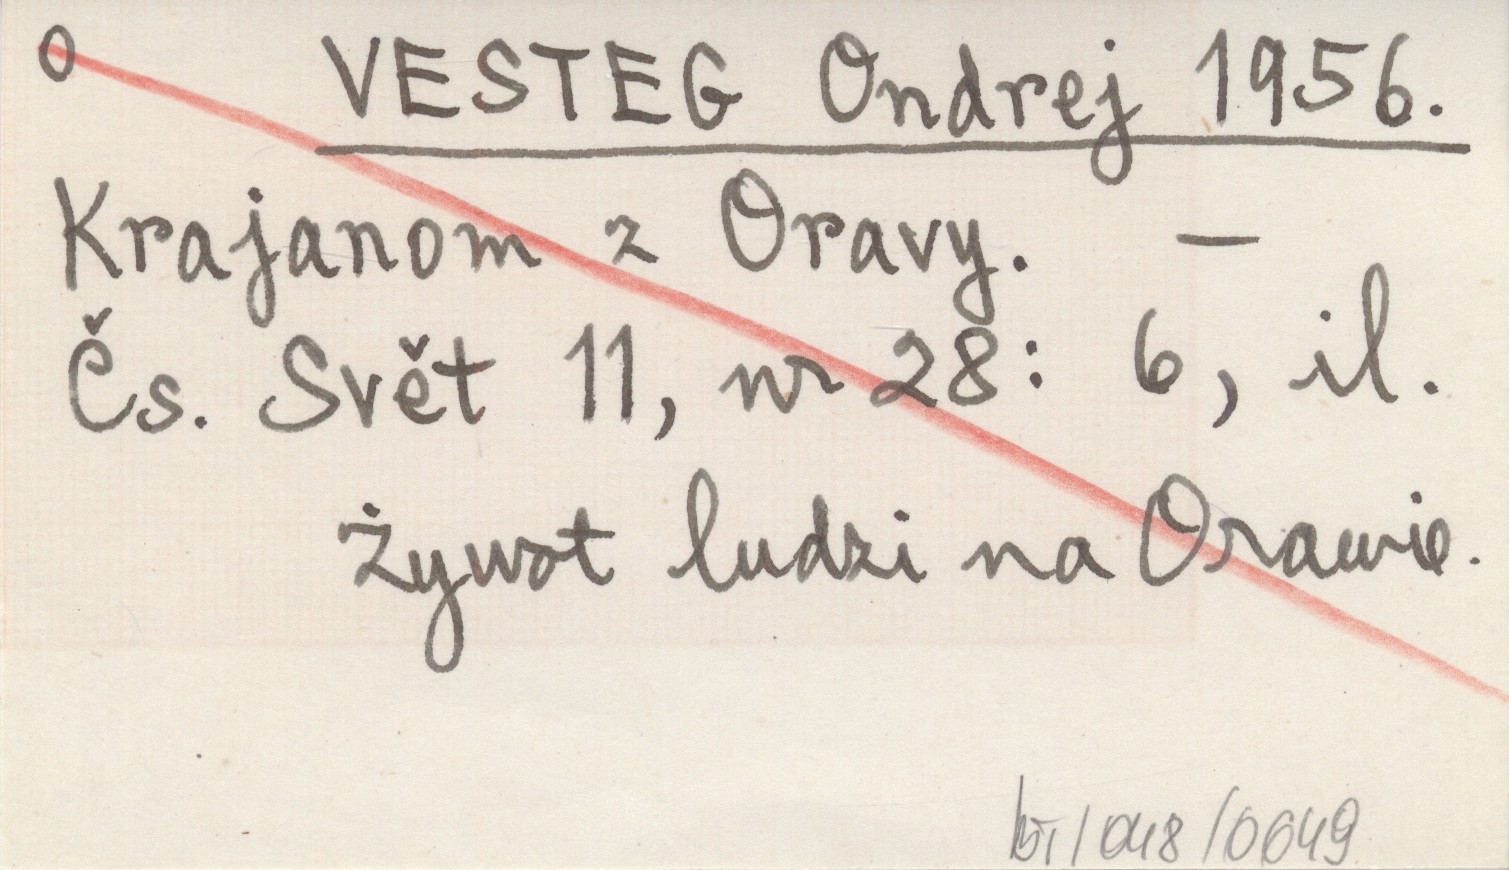 O VESTEG Ondrej 1956.
Krajanom z Oravy. —
Čs. Svět 11, nr 28: 6, il.
Żywot ludzi na Orawie.
/048/0049